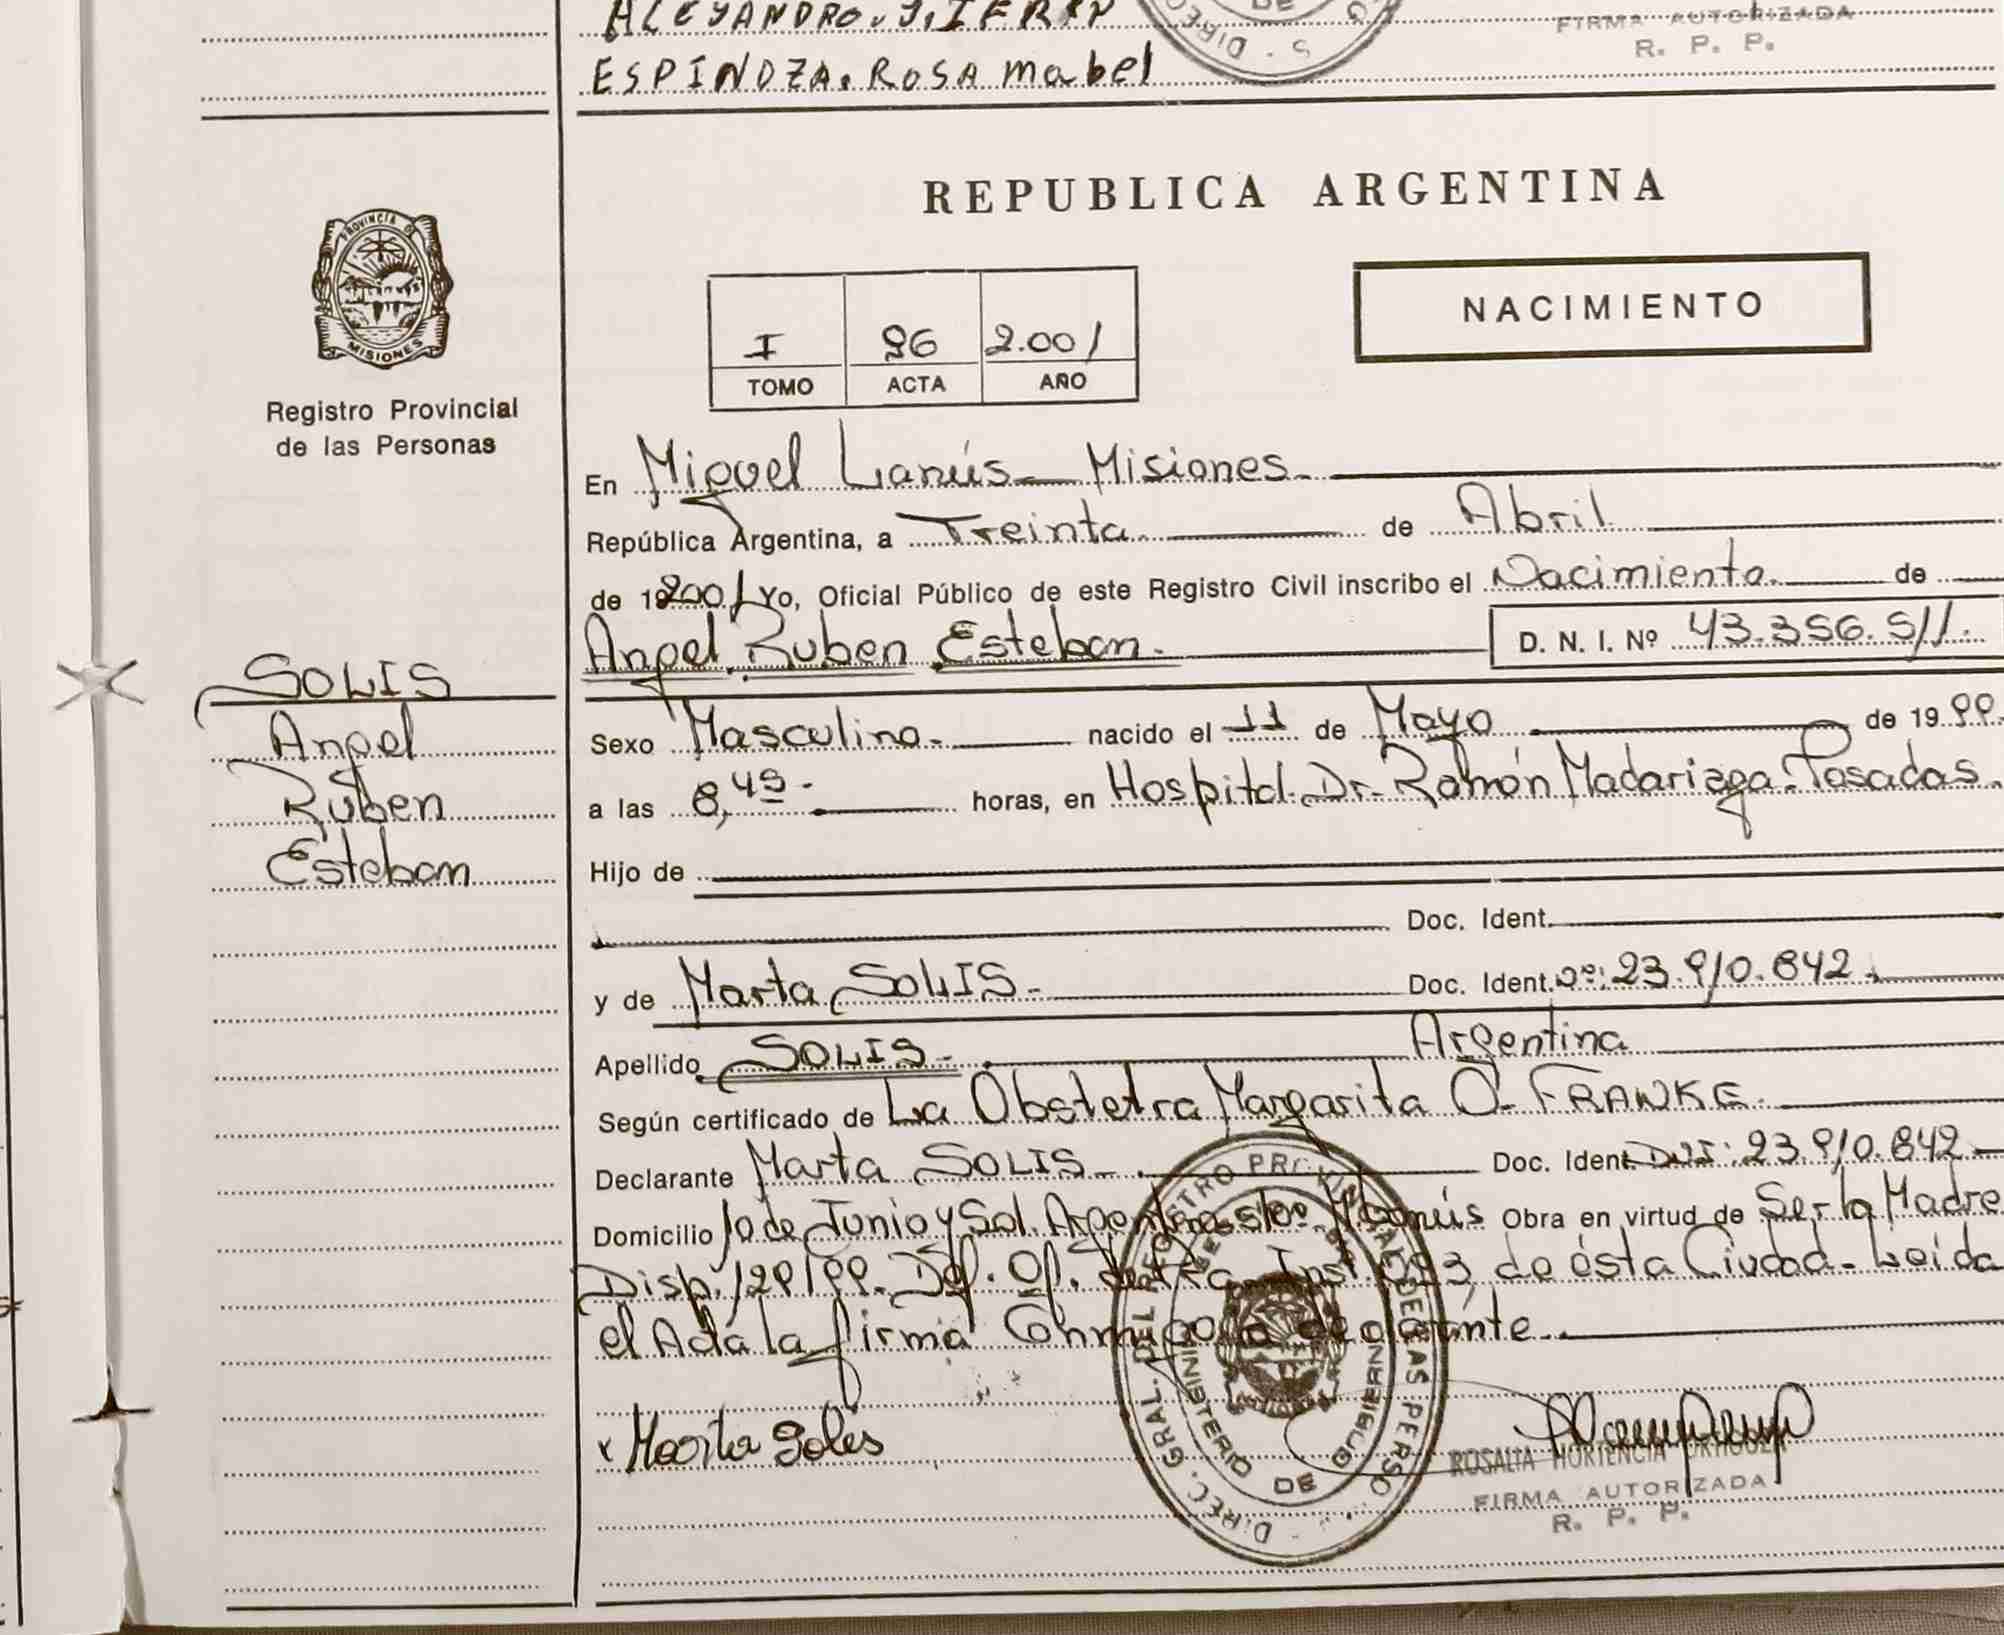 ESPINDZA. ROSA Mabel
FIRMA AUTORIZADA
R. P. P.
PROVINCIA DE
MISIONES
Registro Provincial
de las Personas
REPUBLICA ARGENTINA
NACIMIENTO
I 96 2.001
TOMO ACTA AÑO
En Miguel Lanús - Misiones.
República Argentina, a Treinta. de Abril
de 19 2001 Yo, Oficial Público de este Registro Civil inscribo el Nacimiento. de
Angel Ruben Esteban. D. N. I. Nº 43.356.511.
SOLIS
Angel
Ruben
Esteban
Sexo Masculino. nacido el 11 de Mayo de 1999
a las 8,45. horas, en Hospital Dr. Ramón Madariaga. Posadas.
Hijo de
Doc. Ident.
y de Marta SOLIS. Doc. Ident. Nº: 23.910.842.
Apellido SOLIS. Argentina
Según certificado de La Obstetra Margarita O. FRANKE.
Declarante Marta SOLIS. Doc. Ident. DNI: 23.910.842
Domicilio 10 de Junio y Sol. Argentinas Lanús Obra en virtud de Ser la Madre
Disp. 129/99. Def. Of. 3 de ésta Ciudad. Leída
el Acta la firma Conmigo la declarante.
Marita Solis
DIREC. GRAL. DEL REGISTRO PROVINCIAL DE LAS PERSONAS
MINISTERIO DE GOBIERNO
ROSALIA HORTENCIA
FIRMA AUTORIZADA
R. P. P.